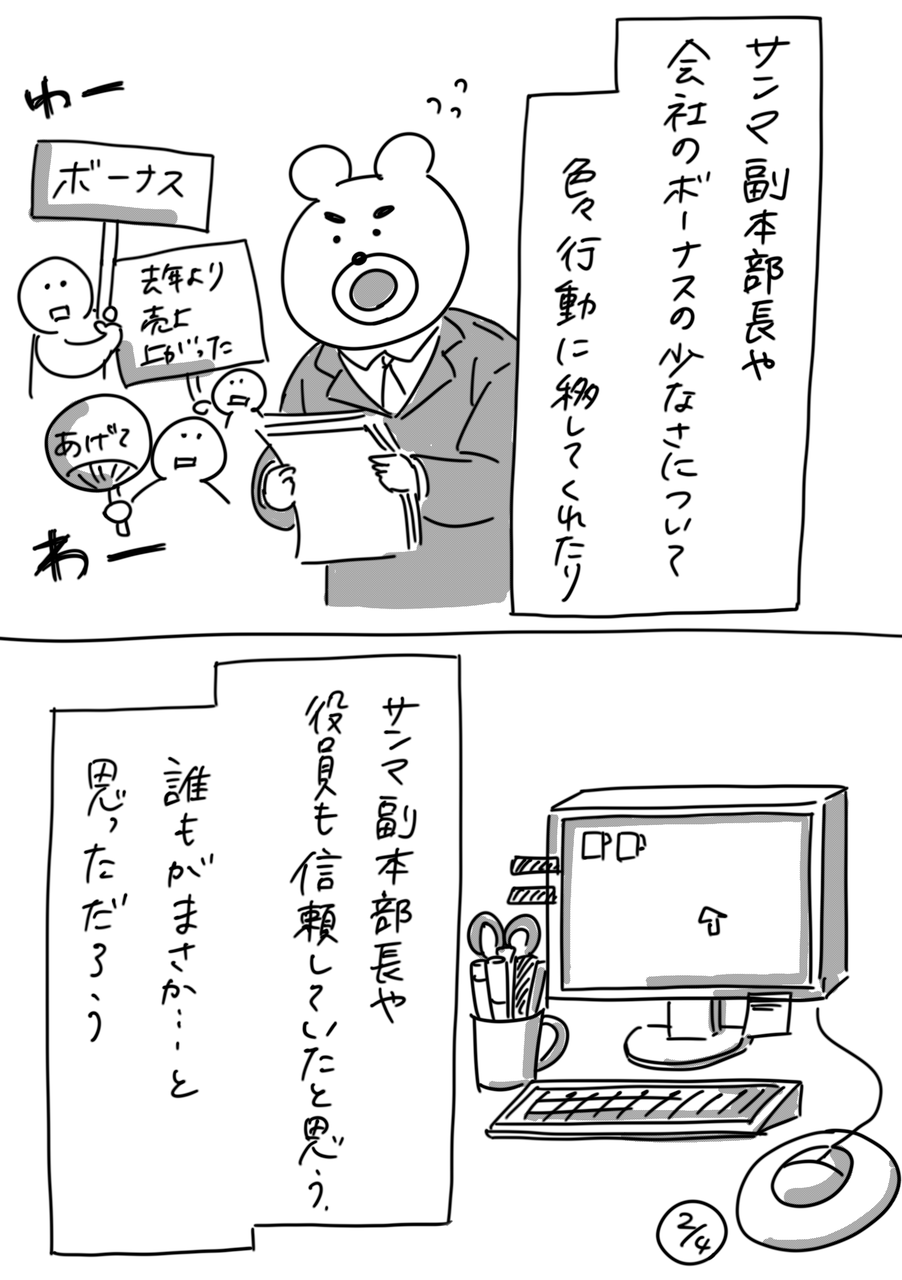 サンマ副本部長や
会社のボーナスの少なさについて
色々行動に移してくれたり
わー
ボーナス
去年より
売上
上がった
あげて
わー
サンマ副本部長や
役員も信頼していたと思う.
誰もがまさか…と
思っただろう
2/4